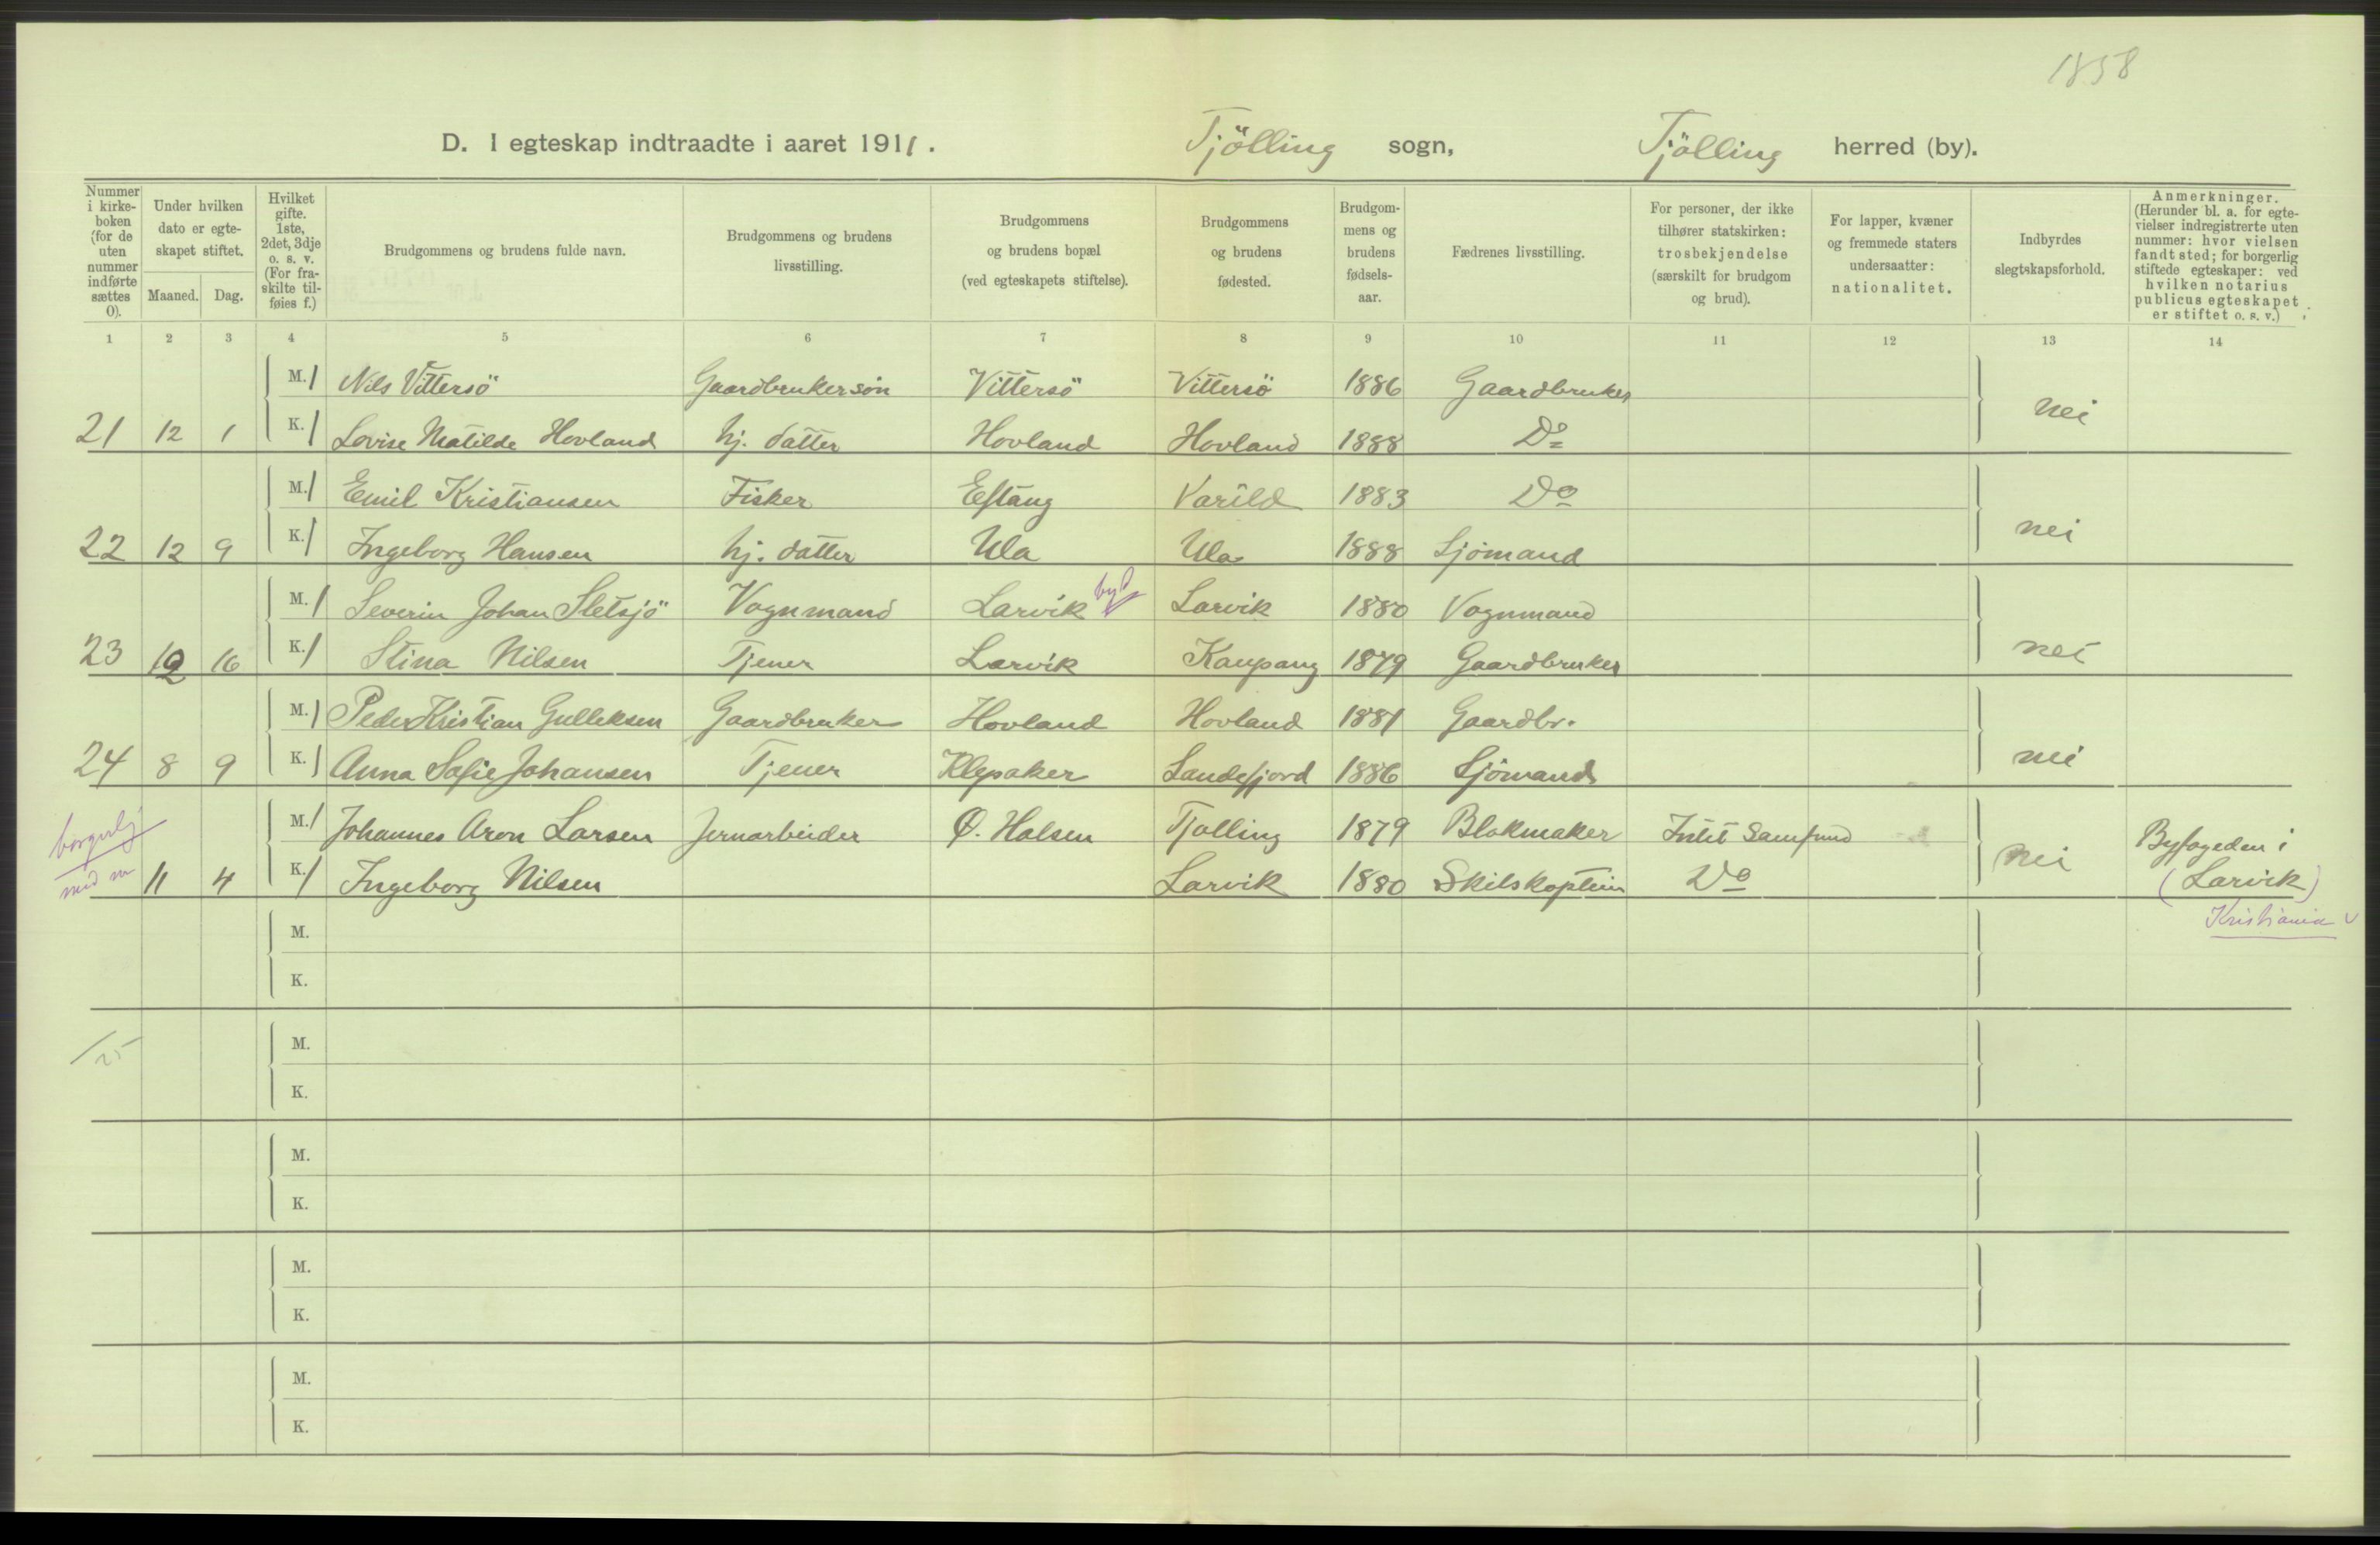 1858
D. I egteskap indtraadte i aaret 1911. Tjölling sogn, Tjölling herred (by).
Nummer i kirke-boken (for de uten nummer indførte sættes 0).
Under hvilken dato er egte-skapet stiftet.
Maaned. Dag.
Hvilket gifte. 1ste, 2det, 3dje o. s. v. (For fra-skilte til-føies f.)
Brudgommens og brudens fulde navn.
Brudgommens og brudens livsstilling.
Brudgommens og brudens bopæl (ved egteskapets stiftelse).
Brudgommens og brudens fødested.
Brudgom-mens og brudens fødsels-aar.
Fædrenes livsstilling.
For personer, der ikke tilhører statskirken: trosbekjendelse (særskilt for brudgom og brud).
For lapper, kvæner og fremmede staters undersaatter: nationalitet.
Indbyrdes slegtskapsforhold.
Anmerkninger. (Herunder bl. a. for egte-vielser indregistrerte uten nummer: hvor vielsen fandt sted; for borgerlig stiftede egteskaper: ved hvilken notarius publicus egteskapet er stiftet o. s. v.)
1 2 3 4 5 6 7 8 9 10 11 12 13 14
M. 1 Nils Vittersö Gaardbrukersön Vittersö Vittersö 1886 Gaardbruker
21 12 1 K. 1 Lovise Matilde Hovland hj. datter Hovland Hovland 1888 Do nei
M. 1 Emil Kristiansen Fisker Eftang Varild 1883 Do
22 12 9 K. 1 Ingeborg Hansen hj. datter Ula Ula 1888 Sjömand nei
M. 1 Severin Johan Sletsjö Vognmand Larvik by Larvik 1880 Vognmand
23 12 16 K. 1 Stina Nilsen Tjener Larvik Kaupang 1879 Gaardbruker nei
M. 1 Peder Kristian Gulleksen Gaardbruker Hovland Hovland 1881 Gaardbr.
24 8 9 K. 1 Anna Sofie Johansen Tjener Klepaker Sandefjord 1886 Sjömand nei
borgerlig M. 1 Johannes Aron Larsen Jernarbeider Ö. Halsen Tjølling 1879 Blokmaker Intet Samfund Byfogeden i
11 4 K. 1 Ingeborg Nilsen Larvik 1880 Skibskaptein Do nei (Larvik)
Kristiania
M.
K.
25
M.
K.
M.
K.
M.
K.
M.
K.